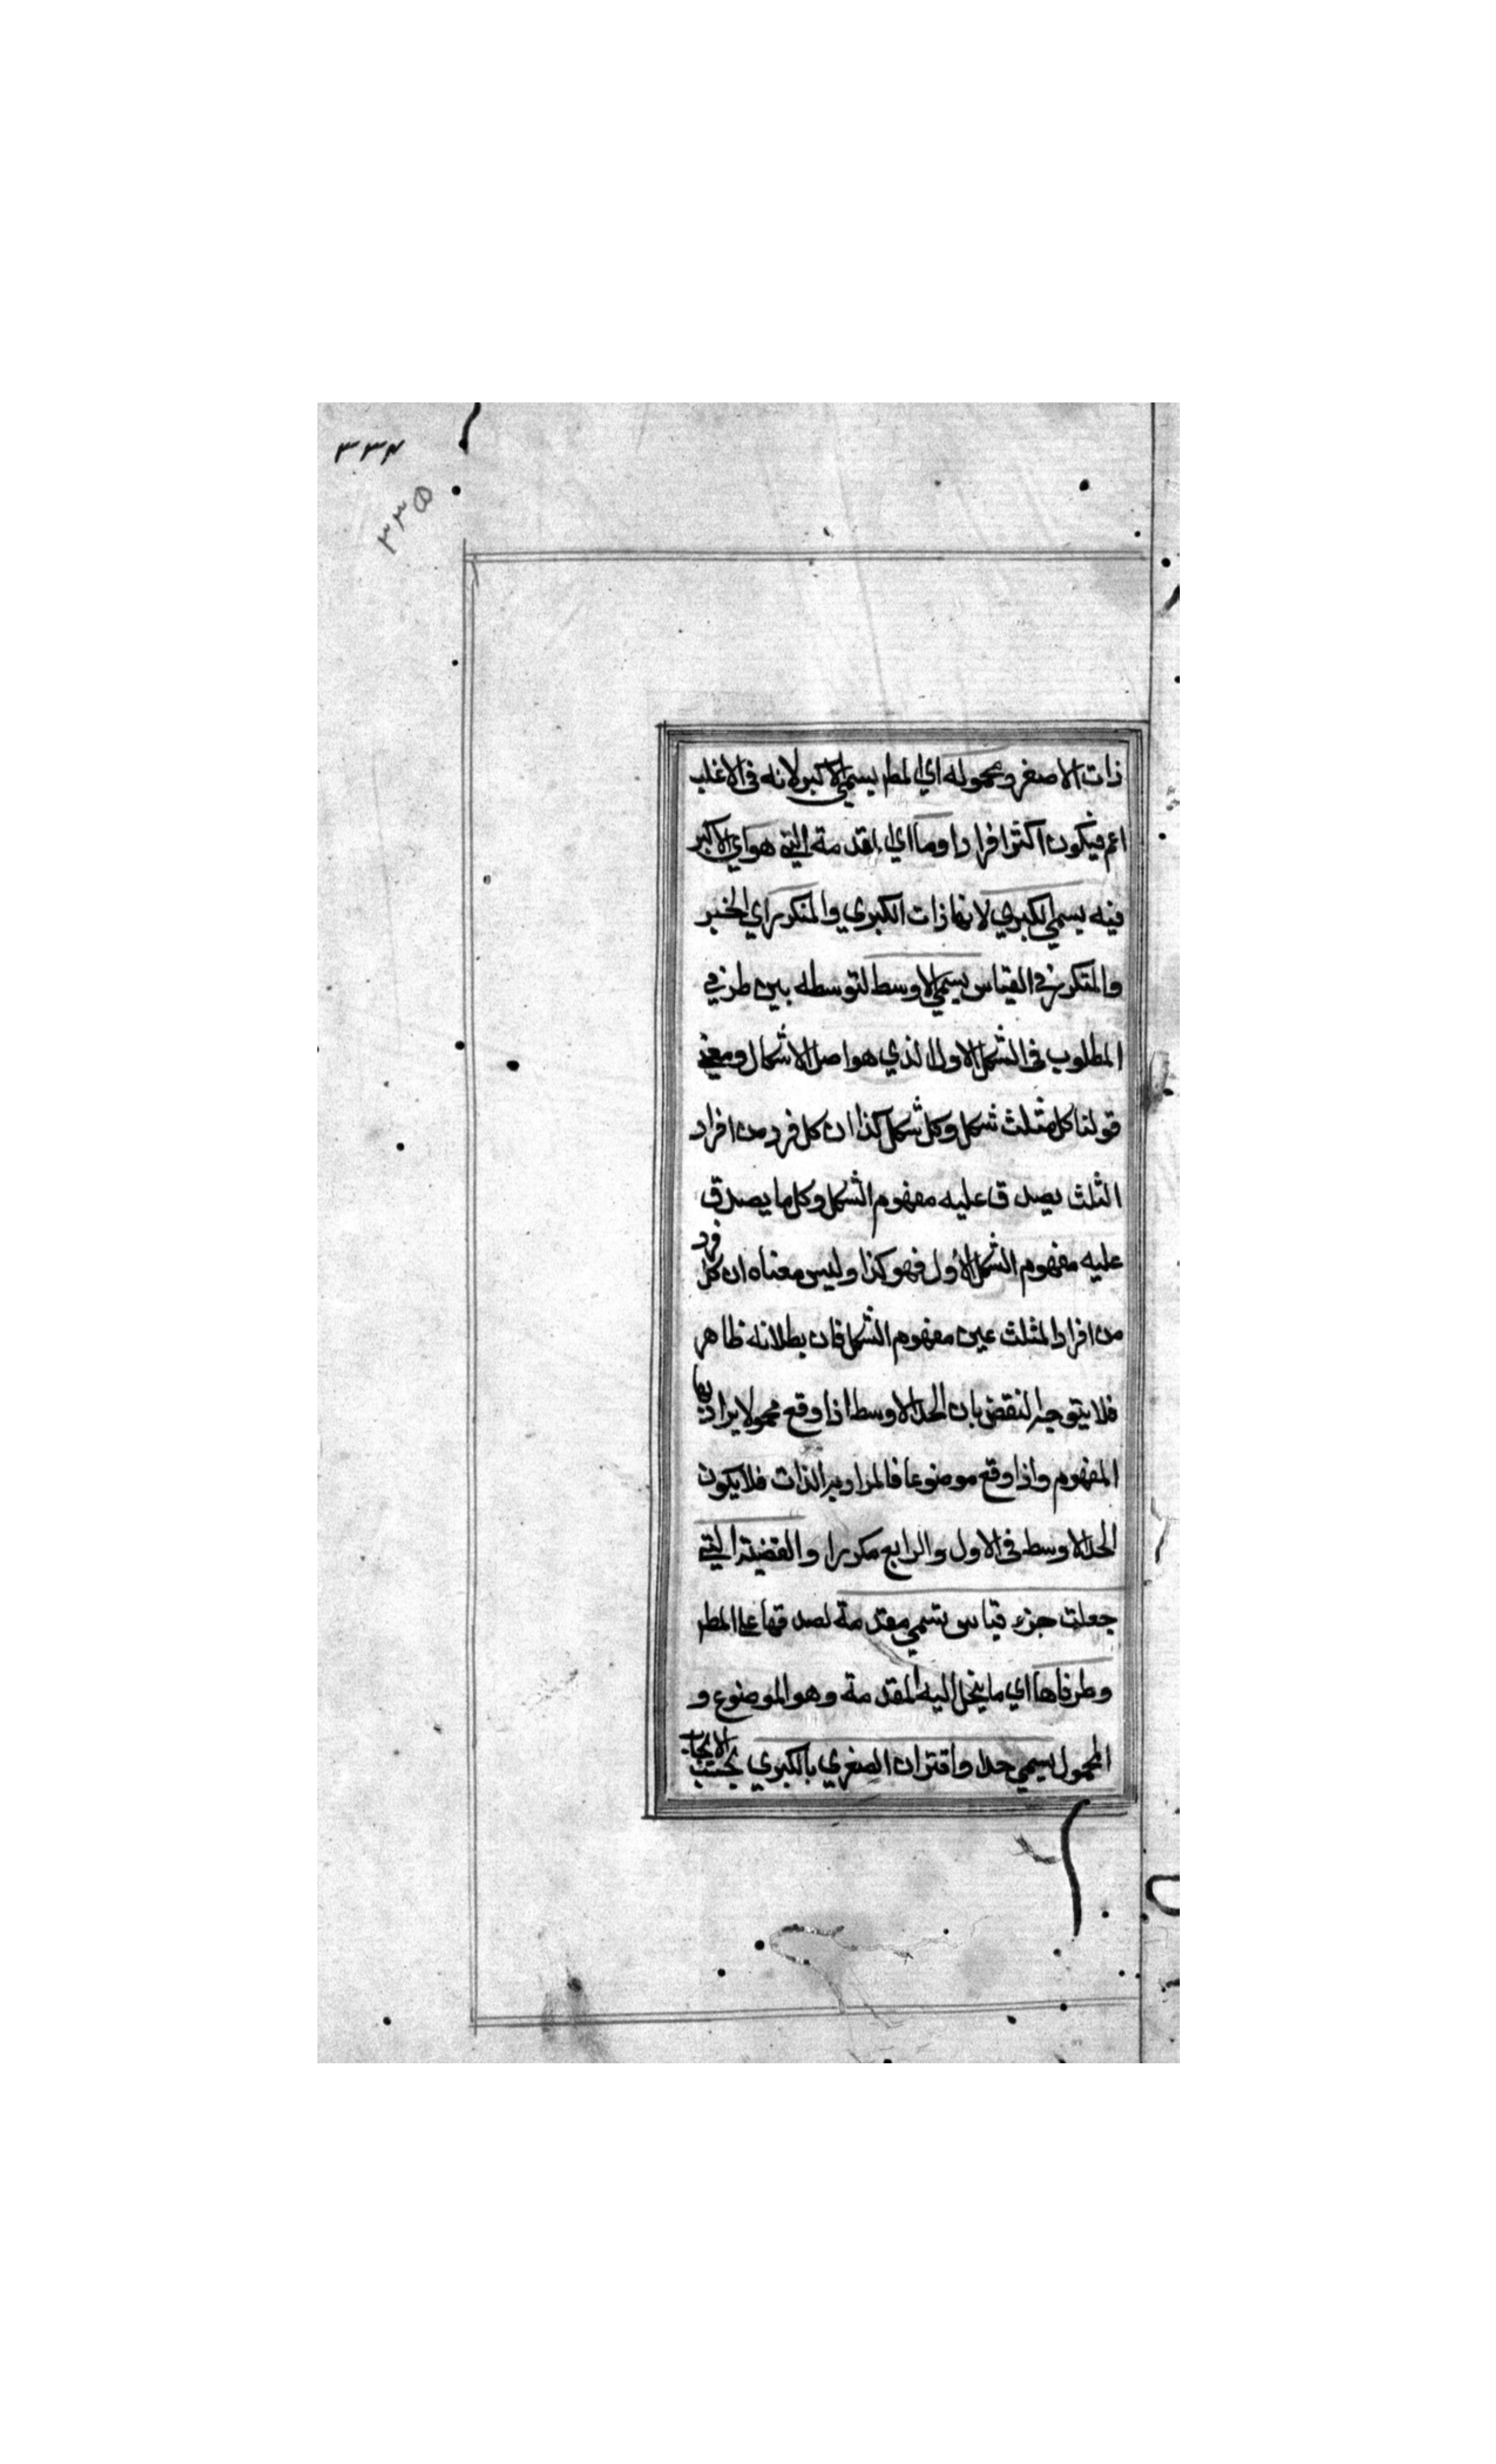 ٣٣٤
٣٣٥
ذات الاصغر ومحموله اي المط يسمي الاكبر لانه فى الاغلب
اعم فيكون اكثر افرادا وما اي المقدمة التي هو اي الاكبر
فيه يسمي الكبري لانها ذات الكبري والمتكرر اي الخبر
والمتكرر في القياس يسمي الاوسط لتوسطه بين طرفي
المطلوب فى الشكل الاول الذي هو اصل الاشكال ومعني
قولنا كل مثلث شكل وكل شكل كذا ان كل فرد من افراد
الثلث يصدق عليه مفهوم الشكل وكل ما يصدق
عليه مفهوم الشكل الاول فهو كذا وليس معناه ان كل فرد
من افراد المثلث عين مفهوم الشكل فان بطلانه ظاهر
فلا يتوجه النقض بان الحد الاوسط اذا وقع محمولا يراد بها
المفهوم واذا وقع موضوعا فالمراد به الذات فلا يكون
الحد الاوسط فى الاول والرابع مكررا والقضية التي
جعلت جزء قياس تسمي مقدمة لصدقها على المط
وطرفاها اي ما ينحل اليه المقدمة وهو الموضوع و
المحمول يسمي حدا واقتران الصغري بالكبري بحسب الايجاب